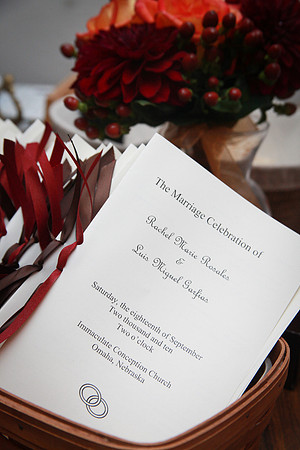 The Marriage Celebration of
Rachel Marie Rosales
&
Luis Miguel Guifias
Saturday, the eighteenth of September
Two thousand and ten
Two o'clock
Immaculate Conception Church
Omaha, Nebraska